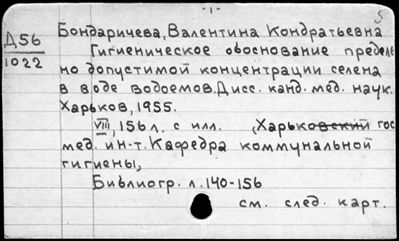 -1-
5
Д56
1022
Бондаричева, Валентина Кондратьевна
Гигиеническое обоснование предель
но допустимой концентрации селена
в воде водоемов. Дисс. канд. мед. наук.
Харьков, 1955.
VIII, 156 л. с илл. (Харьковский гос
мед. ин-т. Кафедра коммунальной
гигиены)
Библиогр. л. 140-156
см. след. карт.